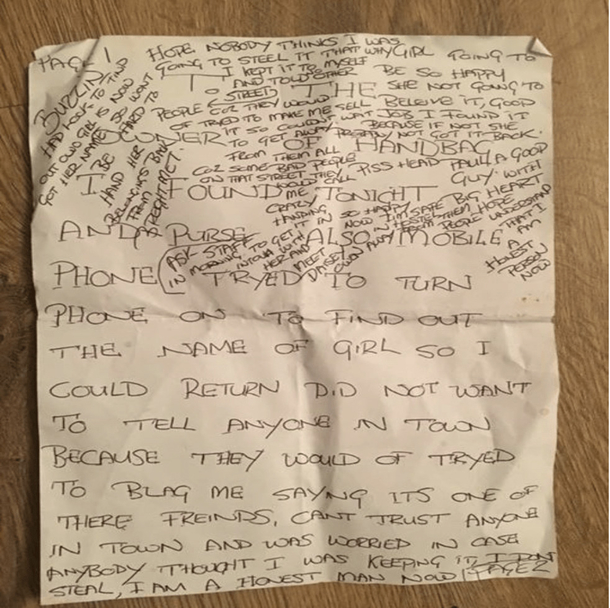 PAGE 1
HOPE NOBODY THINKS I WAS
GOING TO STEEL IT THAT WHY
I KEPT IT TO MYSELF
AND TOLD OTHER
STREET
PEOPLE COZ THEY WOULD
OF TRYED TO MAKE ME SELL
IT SO COULDNT WAIT
TO GET AWAY
FROM THEM ALL
COZ SOME BAD PEOPLE
ON THAT STREET THEY
WOULD CALL
ME
CRAZY
HANDING
IT IN SO HAPPY
NOW I'M SAFE
GIRL GOING TO
BE SO HAPPY
SHE NOT GOING TO
BELEIVE IT, GOOD
JOB I FOUND IT
BECAUSE IF NOT SHE
PROBABLY NOT GOT IT BACK.
PISS HEAD PAUL A GOOD
GUY. WITH
BIG HEART
HOPE
PEOPLE UNDERSTAND
THAT I
AM
A
HONEST
PERSON
NOW
BUZZIN
HAD LOOK TO FIND
OUT OWO GIRL IS NOW
GOT HER NAME SO WONT
BE HARD TO
HAND HER
BELONGINGS BACK
TO THE
OWNER OF HANDBAG
I FOUND TONIGHT
AND PURSE ALSO MOBILE
ASK STAFF
IN MORNING TO GET
INTOUH WITH
HER AND
MEET
PHONE TRYED TO TURN
PHONE ON TO FIND OUT
THE NAME OF GIRL SO I
COULD RETURN DID NOT WANT
TO TELL ANYONE IN TOWN
BECAUSE THEY WOULD OF TRYED
TO BLAG ME SAYING ITS ONE OF
THERE FREINDS, CANT TRUST ANYONE
IN TOWN AND WAS WORRIED IN CASE
ANYBODY THOUGHT I WAS KEEPNG IT, I DONT
STEAL, I AM A HONEST MAN NOW PAGE 2